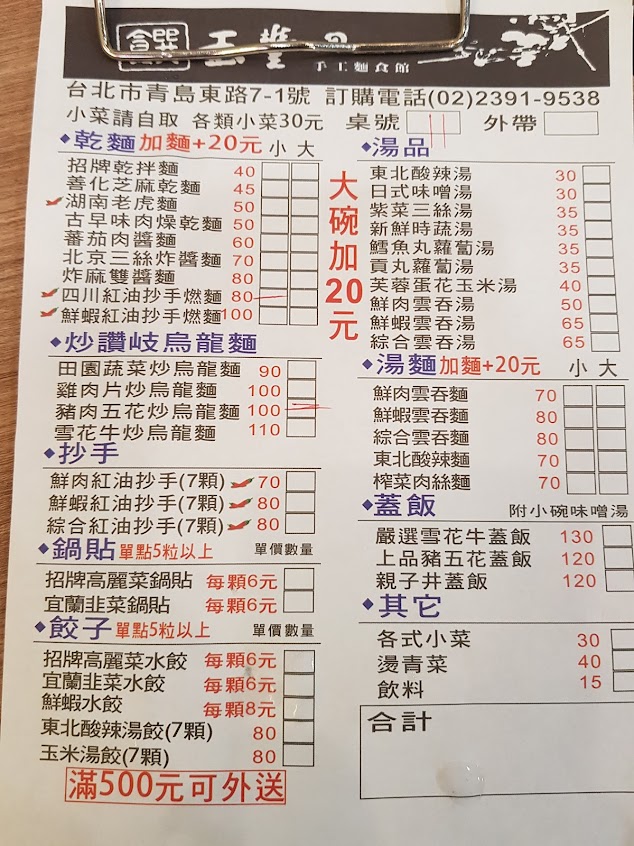 手工麵食館
台北市青島東路7-1號 訂購電話(02)2391-9538
小菜請自取 各類小菜30元 桌號 外帶
乾麵加麵+20元 小 大
招牌乾拌麵 40
善化芝麻乾麵 45
湖南老虎麵 50
古早味肉燥乾麵 50
蕃茄肉醬麵 60
北京三絲炸醬麵 70
炸麻雙醬麵 80
四川紅油抄手燃麵 80
鮮蝦紅油抄手燃麵 100
大碗加20元
炒讚岐烏龍麵
田園蔬菜炒烏龍麵 90
雞肉片炒烏龍麵 100
豬肉五花炒烏龍麵 100
雪花牛炒烏龍麵 110
抄手
鮮肉紅油抄手(7顆) 70
鮮蝦紅油抄手(7顆) 80
綜合紅油抄手(7顆) 80
鍋貼 單點5粒以上 單價數量
招牌高麗菜鍋貼 每顆6元
宜蘭韭菜鍋貼 每顆6元
餃子 單點5粒以上 單價數量
招牌高麗菜水餃 每顆6元
宜蘭韭菜水餃 每顆6元
鮮蝦水餃 每顆8元
東北酸辣湯餃(7顆) 80
玉米湯餃(7顆) 80
滿500元可外送
湯品
東北酸辣湯 30
日式味噌湯 30
紫菜三絲湯 35
新鮮時蔬湯 35
鱈魚丸蘿蔔湯 35
貢丸蘿蔔湯 35
芙蓉蛋花玉米湯 40
鮮肉雲吞湯 50
鮮蝦雲吞湯 65
綜合雲吞湯 65
湯麵加麵+20元 小 大
鮮肉雲吞麵 70
鮮蝦雲吞麵 80
綜合雲吞麵 80
東北酸辣麵 70
榨菜肉絲麵 70
蓋飯 附小碗味噌湯
嚴選雪花牛蓋飯 130
上品豬五花蓋飯 120
親子丼蓋飯 120
其它
各式小菜 30
燙青菜 40
飲料 15
合計